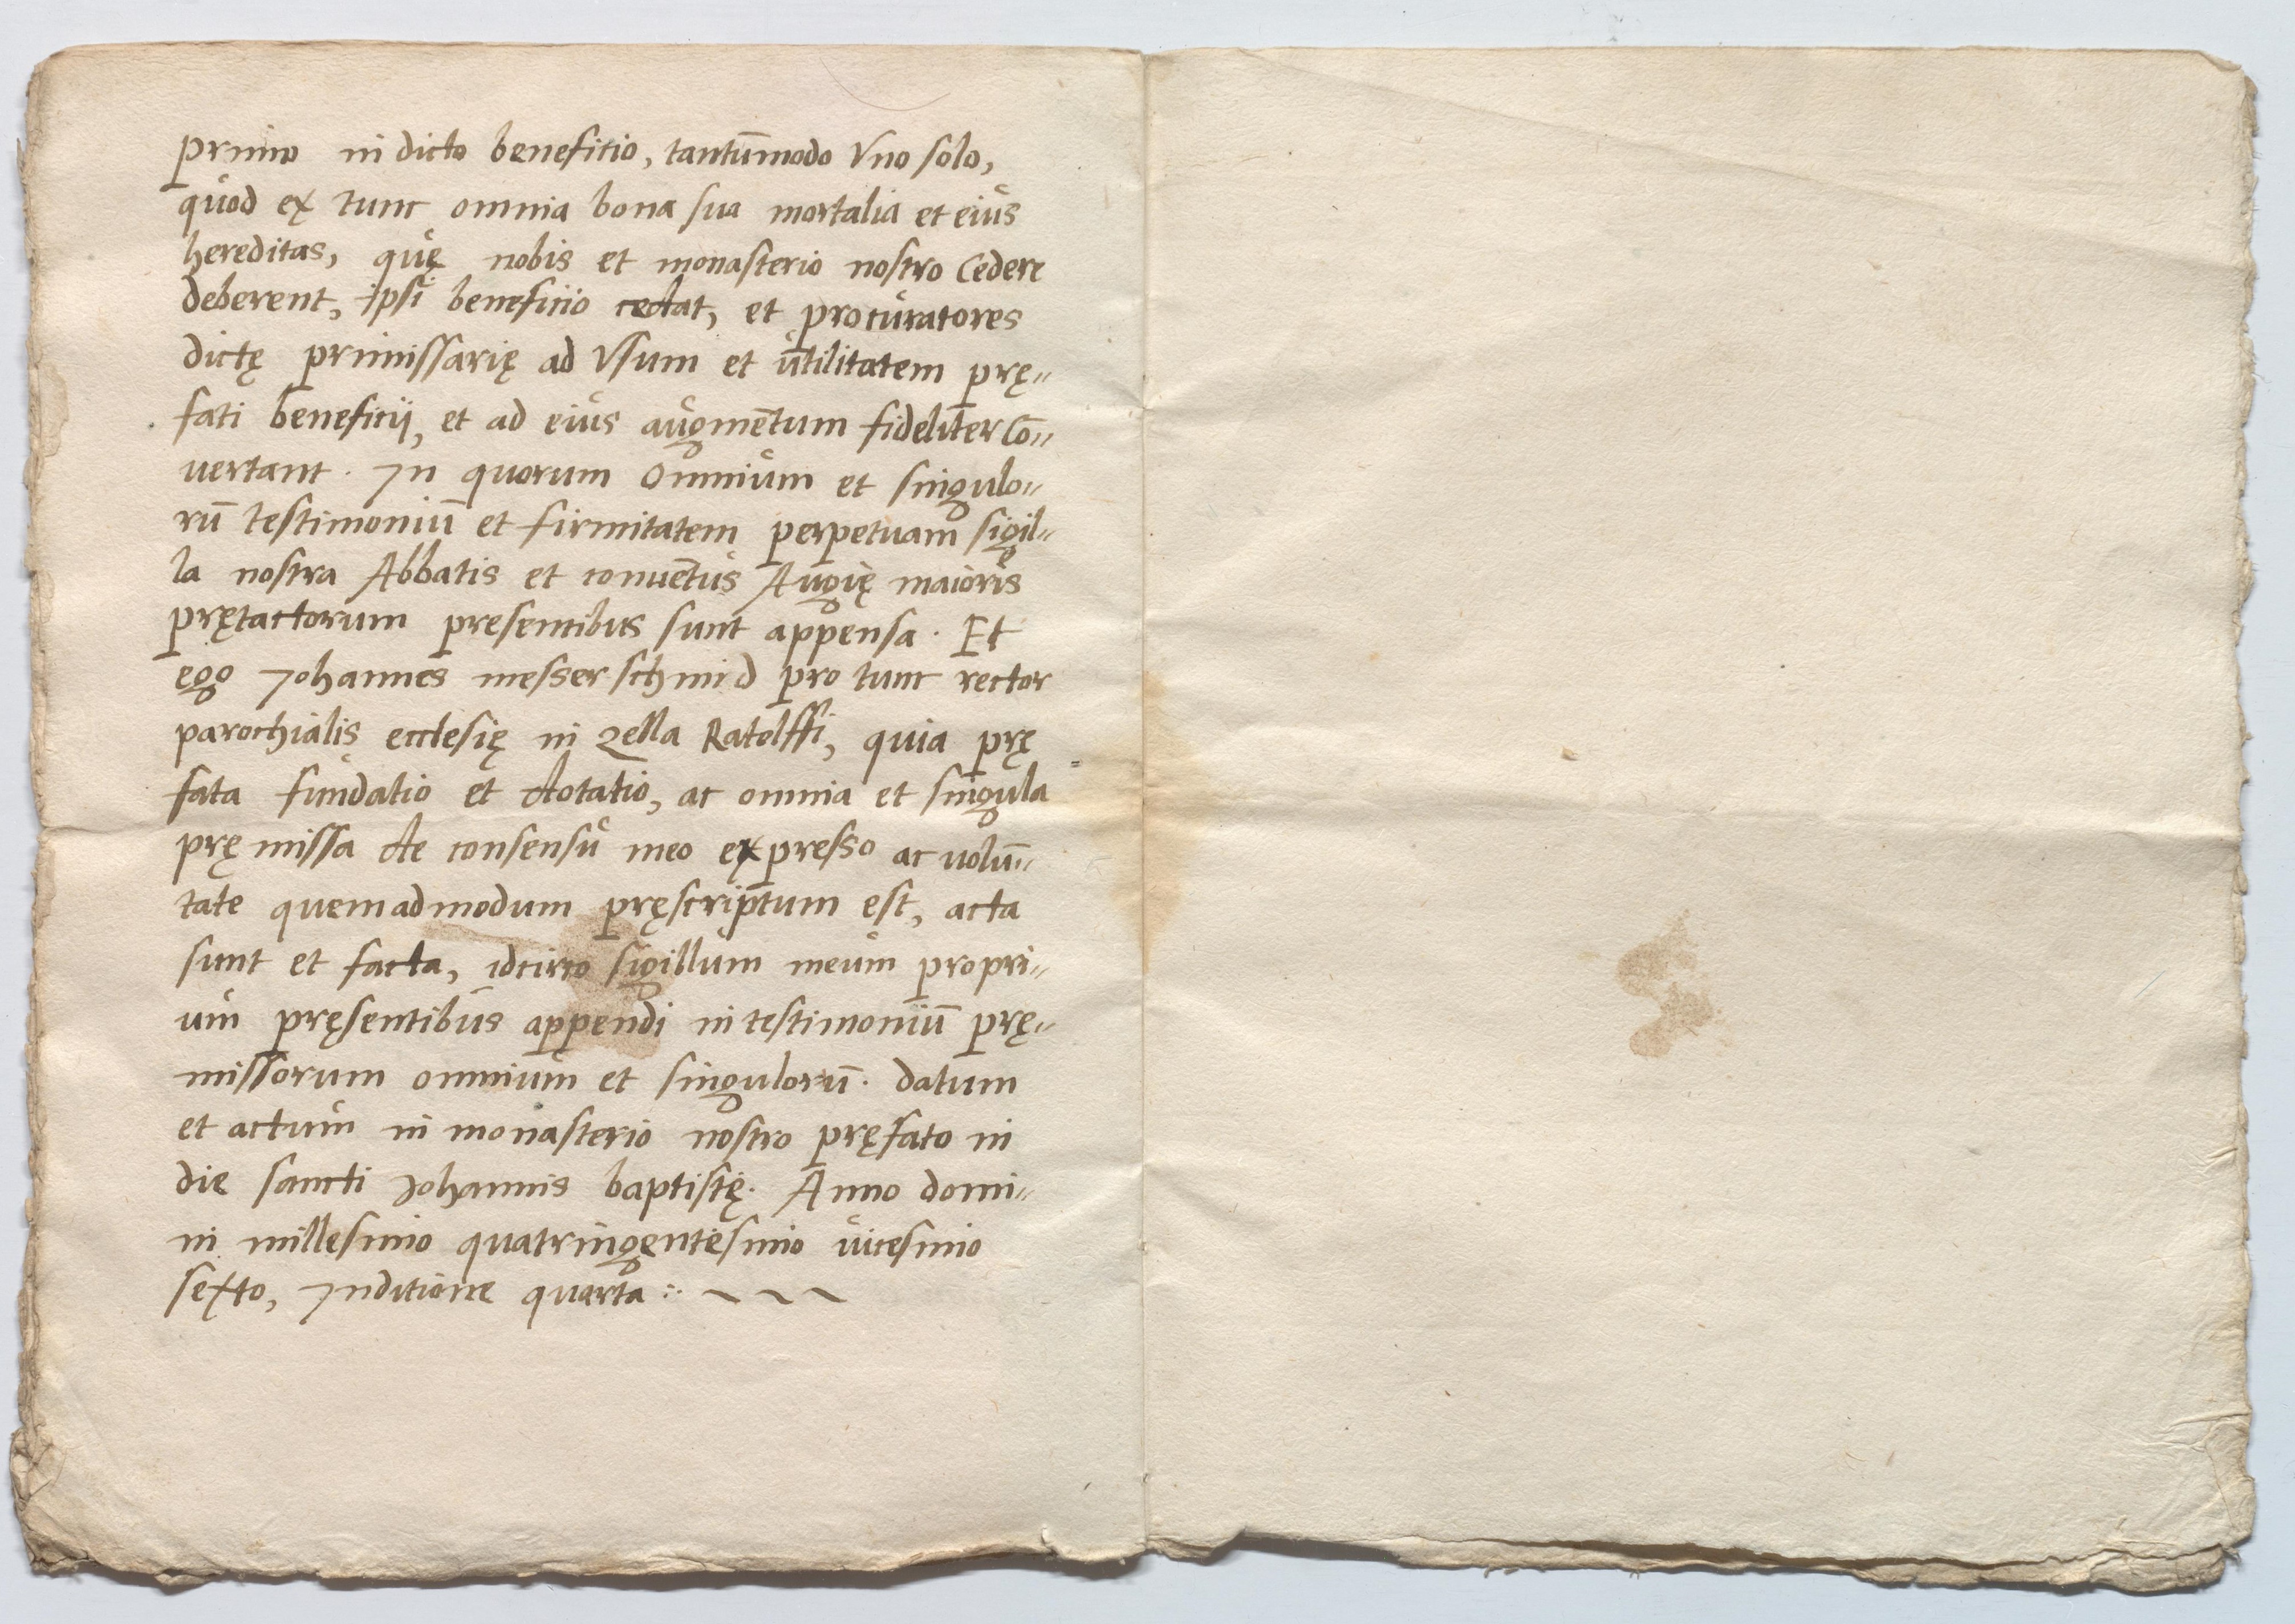 primo in dicto beneficio, tantūmodo Vno solo,
quod ex tunc omnia bona sua mortalia et eius
hereditas, quę nobis et monasterio nostro Cedere
deberent, ipsi beneficio cedat, et procuratores
dictę primissarię ad Vsum et utilitatem prę„
fati beneficii, et ad eius augmētum fideliter Cō„
uertant. In quorum Omnium et singulo„
rū testimoniū et firmitatem perpetuam sigil„
la nostra Abbatis et conuētus Augię maioris
prętactorum presentibus sunt appensa. Et
ego Johannes messerschmid pro tunc rector
parochialis ecclesię in zella Ratolffi, quia prę„
fata fundatio et dotatio, ac omnia et singula
pręmissa de consensu meo expresso ac uolū„
tate quemadmodum pręscriptum est, acta
sunt et facta, idcirco sigillum meum propri„
um pręsentibus appendi in testimoniū prę„
missorum omnium et singulorū. datum
et actum in monasterio nostro pręfato in
die sancti Johannis baptistę. Anno domi„
ni millesimo quatringentesimo uicesimo
sexto, Inditione quarta :~ ~ ~ ~